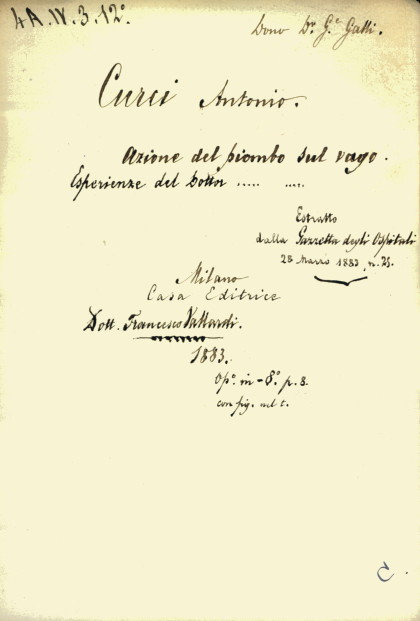 4A.IV.3.12°
Dono Dr. G.e Gatti.
Curci Antonio.
Azione del piombo sul vago.
Esperienze del Dottor ..... ....
Estratto
dalla Gazzetta degli Ospitali
28 Marzo 1883, n. 25.
Milano
Casa Editrice
Dott. Francesco Vallardi.
1883.
Op.° in-8.° p. 8.
con fig. nel t.
C.